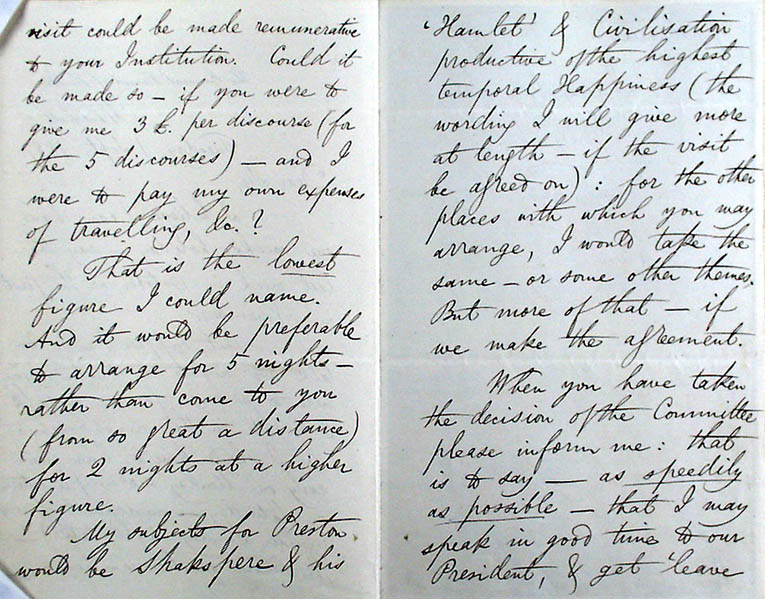 visit could be made remunerative
to your Institution. Could it
be made so – if you were to
give me 3 £. per discourse (for
the 5 discourses) – and I
were to pay my own expenses
of travelling, &c.?
That is the lowest
figure I could name.
And it would be preferable
to arrange for 5 nights –
rather than come to you
(from so great a distance)
for 2 nights at a higher
figure.
My subjects for Preston
would be Shakspere & his
'Hamlet' & Civilisation
productive of the highest
temporal Happiness (the
wording I will give more
at length – if the visit
be agreed on) : for the other
places with which you may
arrange, I would take the
same – or some other themes.
But more of that – if
we make the agreement.
When you have taken
the decision of the Committee
please inform me : that
is to say — as speedily
as possible – that I may
speak in good time to our
President, & get 'leave